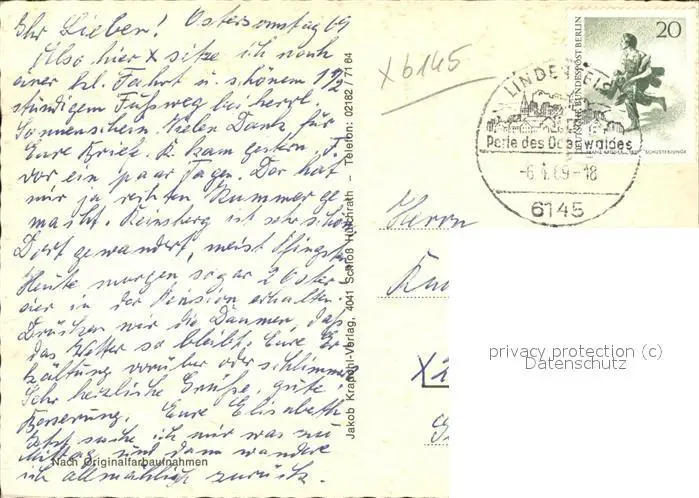 Ihr Lieben! Ostersonntag 69
Also hier x sitze ich nach
einer hl. Fahrt u. schönem 1 1/2
stündigem Fußweg bei herrl.
Sonnenschein. Vielen Dank für
Eure Briefe. K. kam gestern, J.
vor ein paar Tagen. Der hat
mir ja rechten Kummer ge
macht. ist sehr schön
Dort gewandert, meist Pfingsten
Heute morgen sogar 2 Oster
eier in der Pension erhalten.
Drücken mir die Daumen, daß
das Wetter so bleibt. Eure Er
kältung vorüber oder schlimmer
Sehr herzliche Grüße, gute
Besserung. Eure Elisabeth
Jetzt suche ich mir was zu
Mittag und dann wandere
ich allmählich zurück.
Nach Originalfarbaufnahmen
Jakob Krapohl-Verlag, 4041 Schloß Hülchrath – Telefon: 02182 / 7164
X 6145
LINDENFELS
Perle des Odenwaldes
-6.4.69-18
6145
20
DEUTSCHE BUNDESPOST BERLIN
SCHUSTERJUNGE
Herrn
X2
privacy protection (c)
Datenschutz